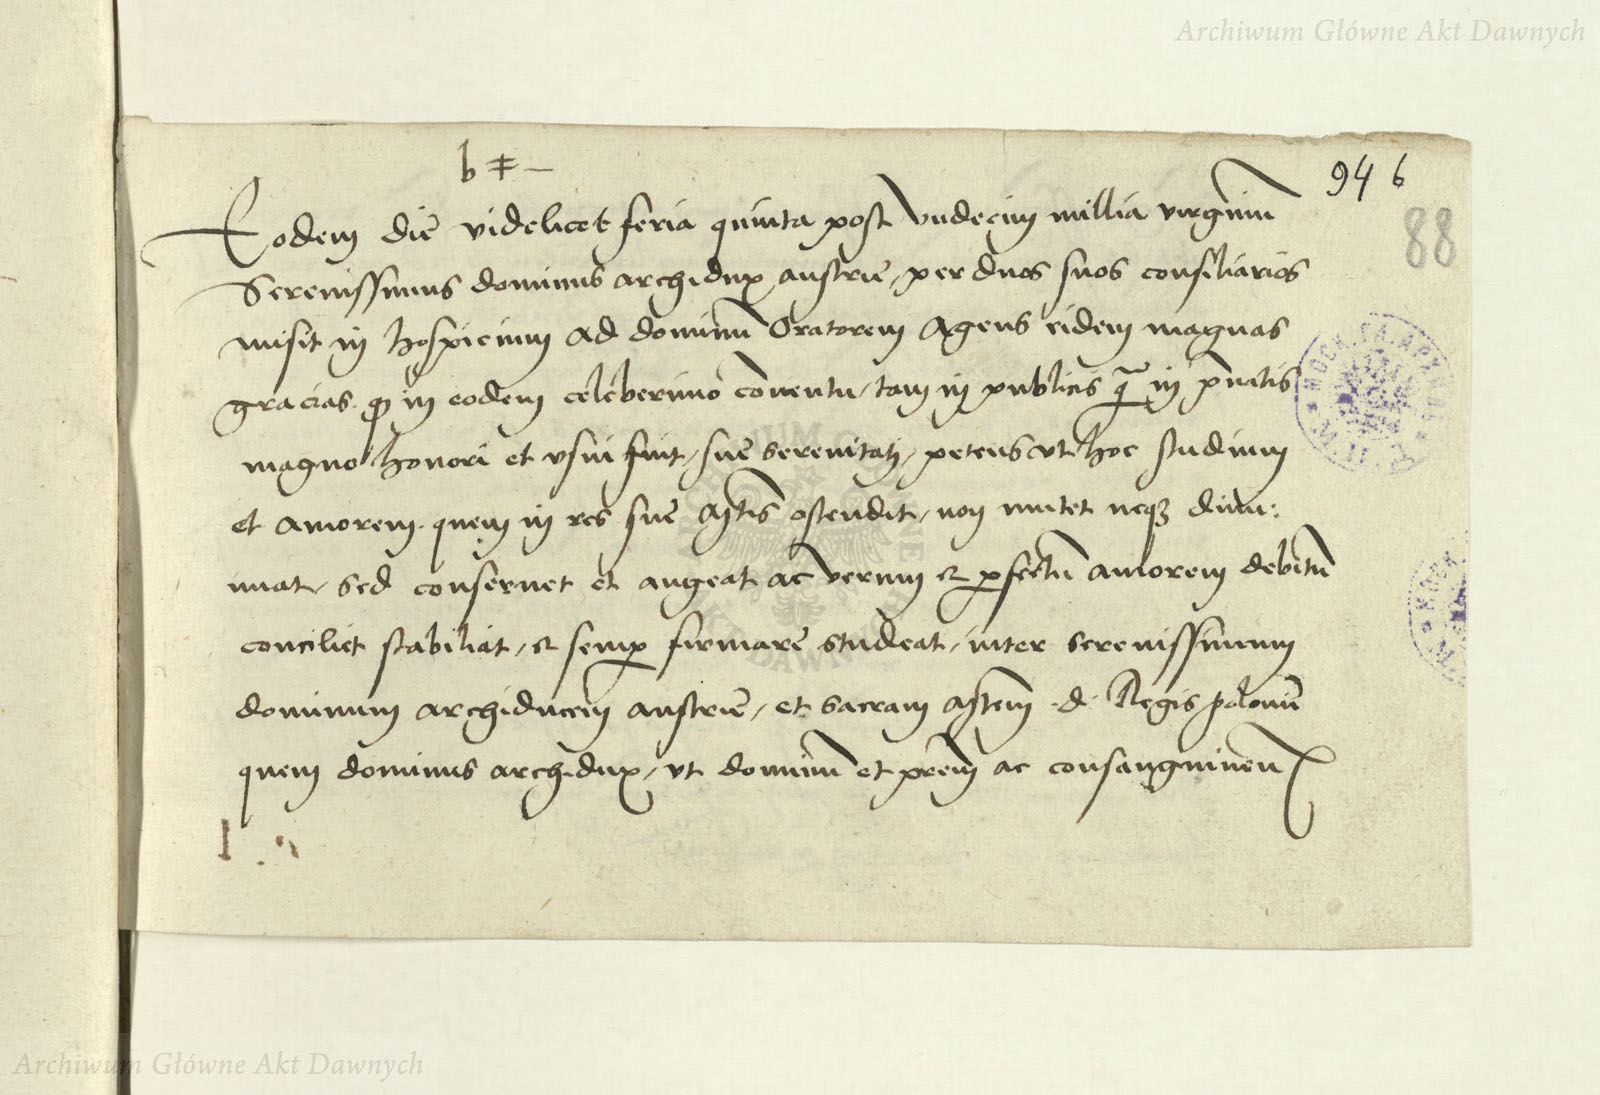 Archiwum Główne Akt Dawnych
b ‡ –
94 b
88
Eodem die videlicet feria quinta post vndecim millia virginum
Serenissimus dominus archidux austrie, per duos suos consiliarios
misit in hospicium ad dominum Oratorem Agens eidem magnas
gracias. quod in eodem celeberimo conventu, tam in publicis quam in privatis
magno honori et vsui fuit, sue serenitati, petens vt hoc studium
et amorem. quem in res sue Mtis ostendit, non mutet neque dimi:
nuat, sed conservet et augeat ac verum et perfectum amorem debitum
conciliet stabiliat, et semper firmare studeat, inter serenissimum
dominum archiducem austrie, et sacram Mtem d. Regis polonie
quem dominus archidux, vt dominum et patrem ac consanguineum
Archiwum Główne Akt Dawnych